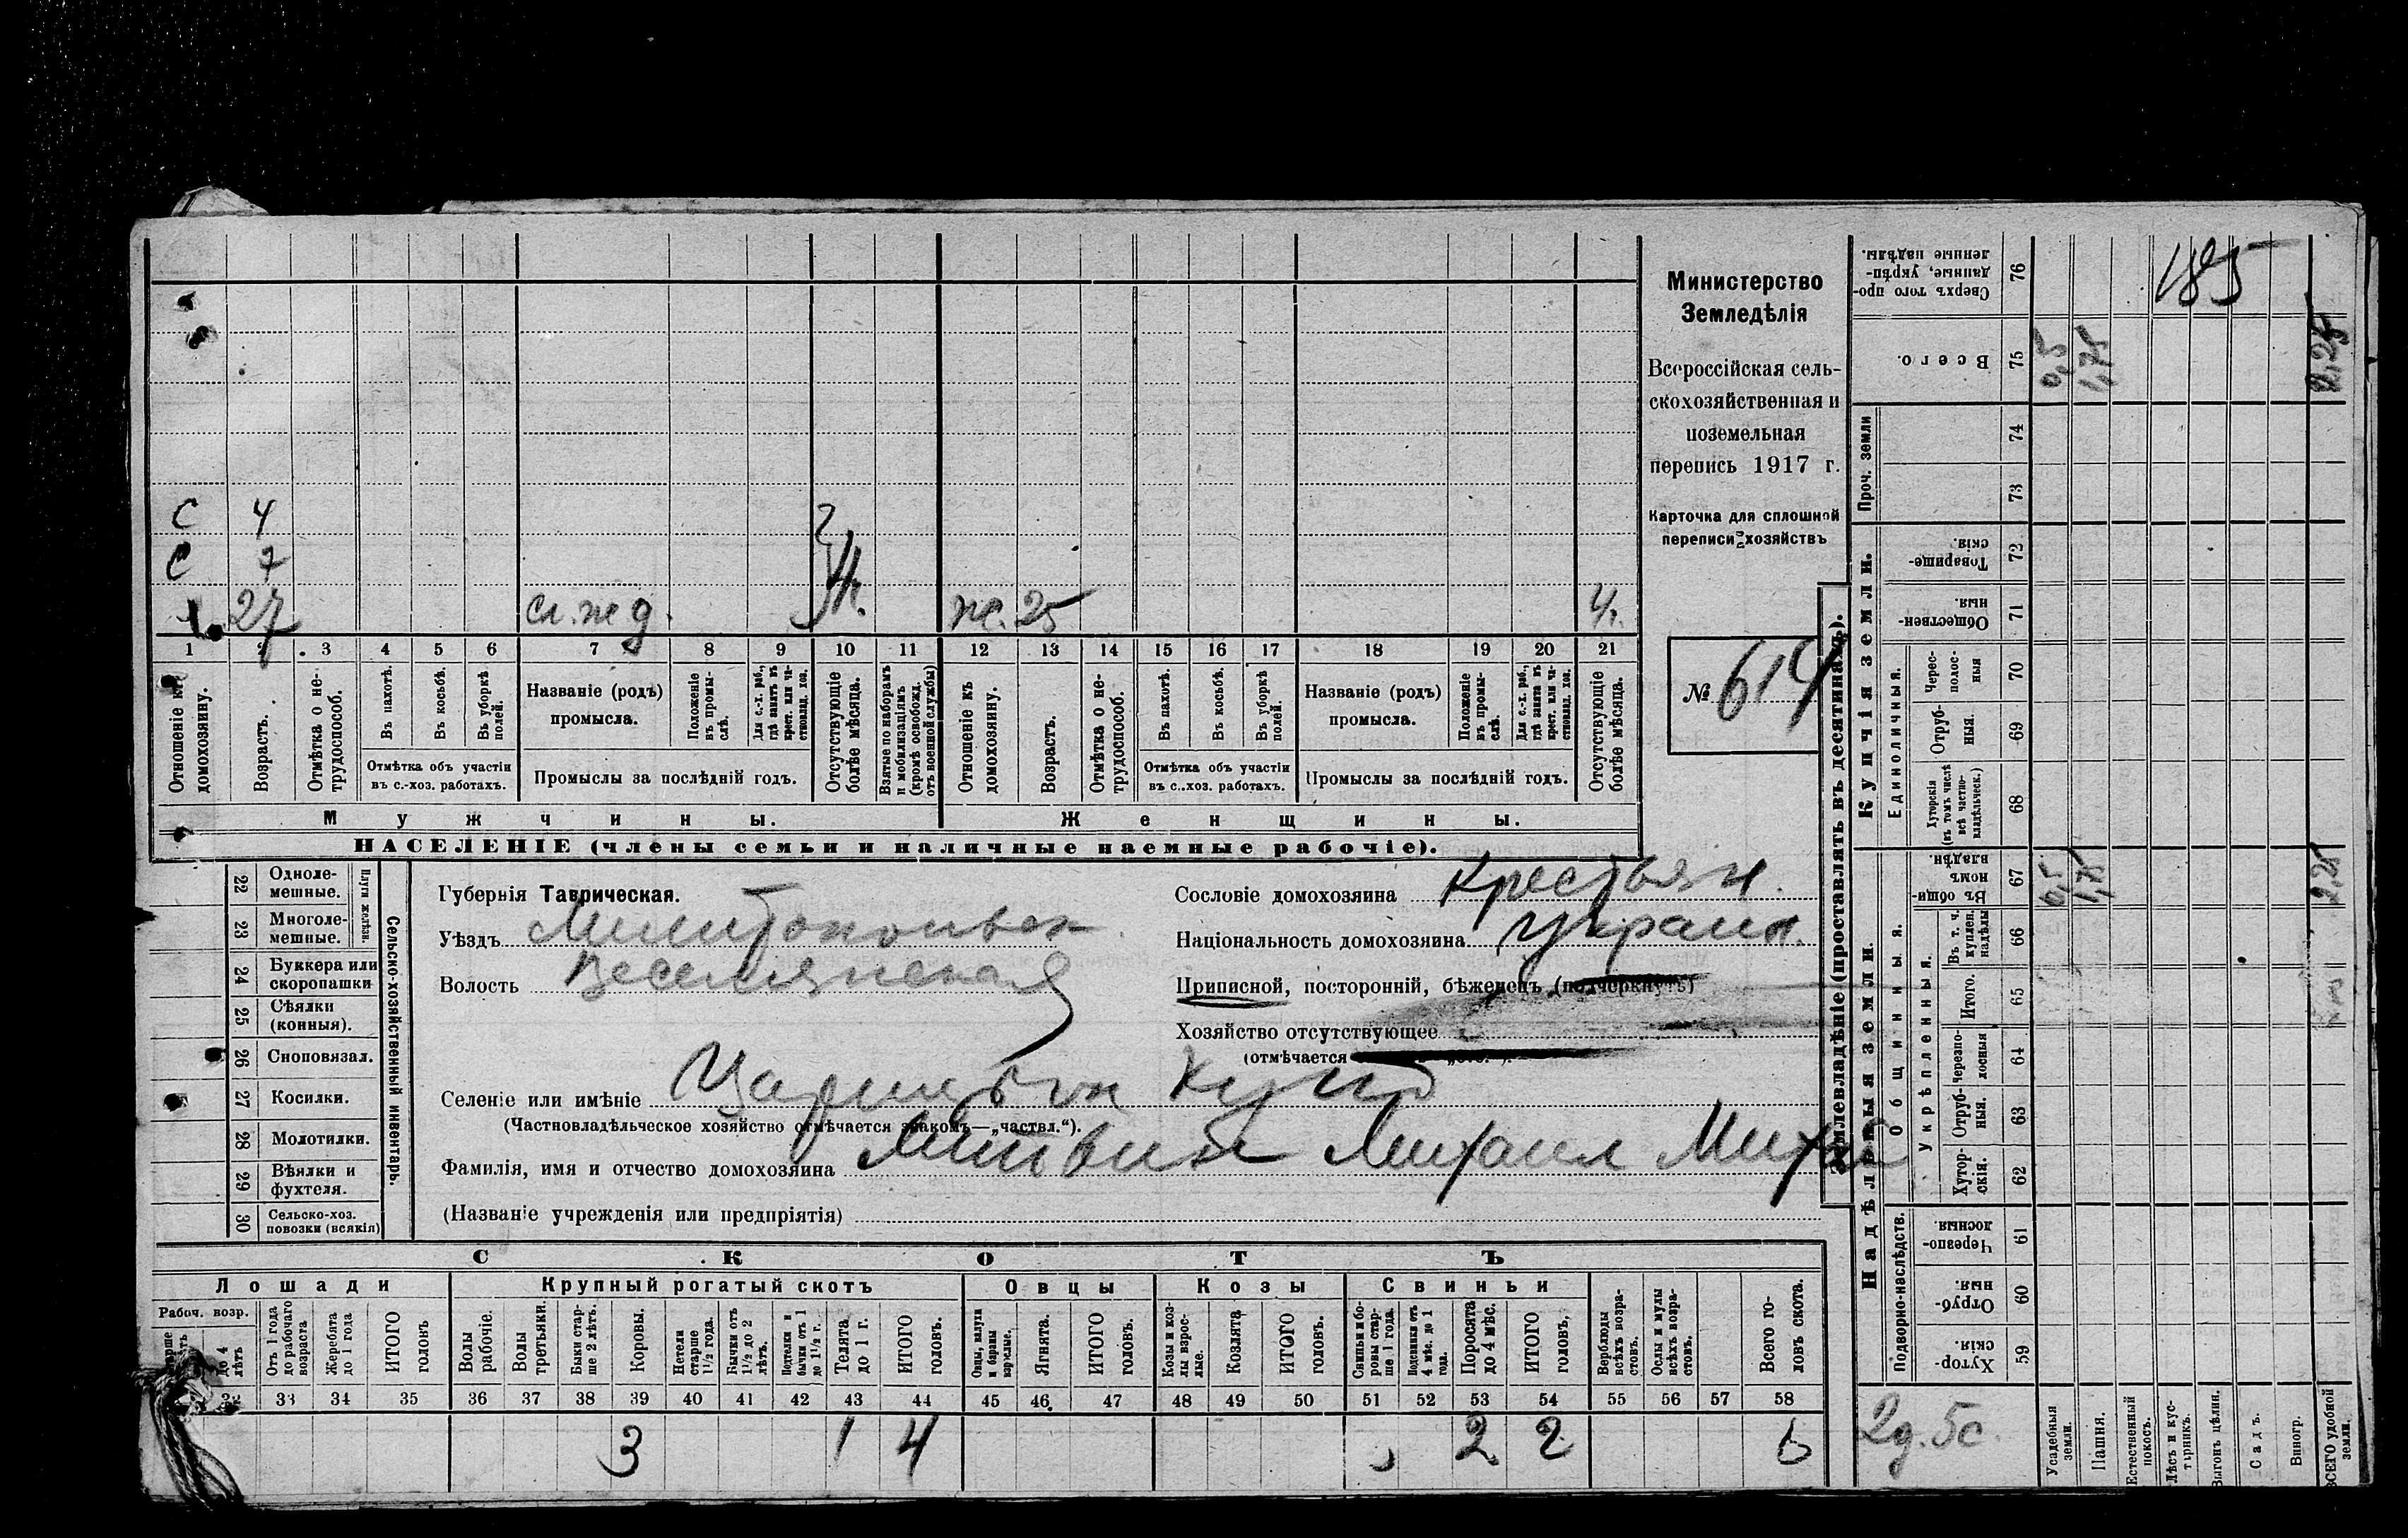 Министерство
Земледѣлія
Всероссійская сель-
скохозяйственная и
поземельная
перепись 1917 г.
Карточка для сплошной
переписи хозяйствъ
№ 614
С 4
С 7
1. 27 сл. ж д. ж. 25
1 2 3 4 5 6 7 8 9 10 11 12 13 14 15 16 17 18 19 20 21
Отношеніе къ домохозяину.
Возрастъ.
Отмѣтка о не-трудоспособ.
Въ пахотѣ.
Въ косьбѣ.
Въ уборкѣ полей.
Отмѣтка объ участіи
въ с.-хоз. работахъ.
Названіе (родъ)
промысла.
Положеніе въ промы-слѣ.
Для с.-х. раб., гдѣ занятъ въ крест. или ча-стновлад. хоз.
Промыслы за послѣдній годъ.
Отсутствующіе болѣе мѣсяца.
Взятые по наборамъ и мобилизаціямъ (кромѣ освобожд. отъ военной службы)
Отношеніе къ домохозяину.
Возрастъ.
Отмѣтка о не-трудоспособ.
Въ пахотѣ.
Въ косьбѣ.
Въ уборкѣ полей.
Отмѣтка объ участіи
въ с.-хоз. работахъ.
Названіе (родъ)
промысла.
Положеніе въ промы-слѣ.
Для с.-х. раб., гдѣ занятъ въ крест. или ча-стновлад. хоз.
Промыслы за послѣдній годъ.
Отсутствующіе болѣе мѣсяца.
Мужчины. Женщины.
НАСЕЛЕНІЕ (члены семьи и наличные наемные рабочіе).
22 Одноле-мешные.
23 Многоле-мешные.
Плуги желѣзн.
24 Буккера или скоропашки
25 Сѣялки (конныя).
26 Сноповязал.
27 Косилки.
28 Молотилки.
29 Вѣялки и фухтеля.
30 Сельско-хоз. повозки (всякія)
Сельско-хозяйственный инвентарь.
Губернія Таврическая.
Уѣздъ Мелитопольск.
Волость Веселянская
Селеніе или имѣніе
(Частновладѣльческое хозяйство отмѣчается знакомъ—„частвл.“).
Фамилія, имя и отчество домохозяина Михаил
(Названіе учрежденія или предпріятія)
Сословіе домохозяина Крестьян.
Національность домохозяина Украин.
Приписной, посторонній, бѣженецъ (подчеркнуть)
Хозяйство отсутствующее
(отмѣчается
СКОТЪ
Лошади Крупный рогатый скотъ Овцы Козы Свиньи
Рабоч. возр.
до 4 лѣтъ
Отъ 1 года до рабочаго возраста
Жеребята до 1 года
ИТОГО головъ
Волы рабочіе.
Волы третьяки.
Быки стар-ше 2 лѣтъ.
Коровы.
Нетели старше 1½ года.
Бычки отъ 1½ до 2 лѣтъ.
Подтелки и бычки отъ 1 до 1½ г.
Телята до 1 г.
ИТОГО головъ.
Овцы, валухи и бараны взрослые.
Ягнята.
ИТОГО головъ.
Козы и коз-лы взрос-лые.
Козлята
ИТОГО головъ.
Свиньи и бо-ровы стар-ше 1 года.
Подсвинки отъ 4 мѣс. до 1 года.
Поросята до 4 мѣс.
ИТОГО головъ.
Верблюды всѣхъ возра-стовъ.
Ослы и мулы всѣхъ возра-стовъ.
Всего го-ловъ скота.
33 34 35 36 37 38 39 40 41 42 43 44 45 46 47 48 49 50 51 52 53 54 55 56 57 58
3 1 4 2 2 6
Землевладѣніе (проставлять въ десятинахъ).
Надѣльныя земли. Купчія земли. Проч. земли
Подворно-наслѣдств. Общинныя. Укрѣпленныя. Единоличныя.
Хутор-скія. 59
Отруб-ныя. 60
Черезпо-лосныя. 61
Хутор-скія. 62
Отруб-ныя. 63
Черезпо-лосныя 64
Итого. 65
Въ т. ч. куплен. надѣлы 66
Въ общин-номъ владѣн. 67
Хуторскія (въ томъ числѣ всѣ частно-владѣльческ.) 68
Отруб-ныя. 69
Черес-полос-ныя 70
Обществен-ныя. 71
Товарище-скія. 72
73
74
Всего. 75
Сверхъ того про-данные, укрѣп-ленные надѣлы. 76
2д. 5с.
Усадебныя земли. 0,5 0,5
Пашня. 1,75 1,75
Естественный покосъ.
Лѣсъ и кус-тарникъ.
Выгонъ цѣлин.
Садъ.
Виногр.
ВСЕГО удобной земли. 2,25 2,25
185